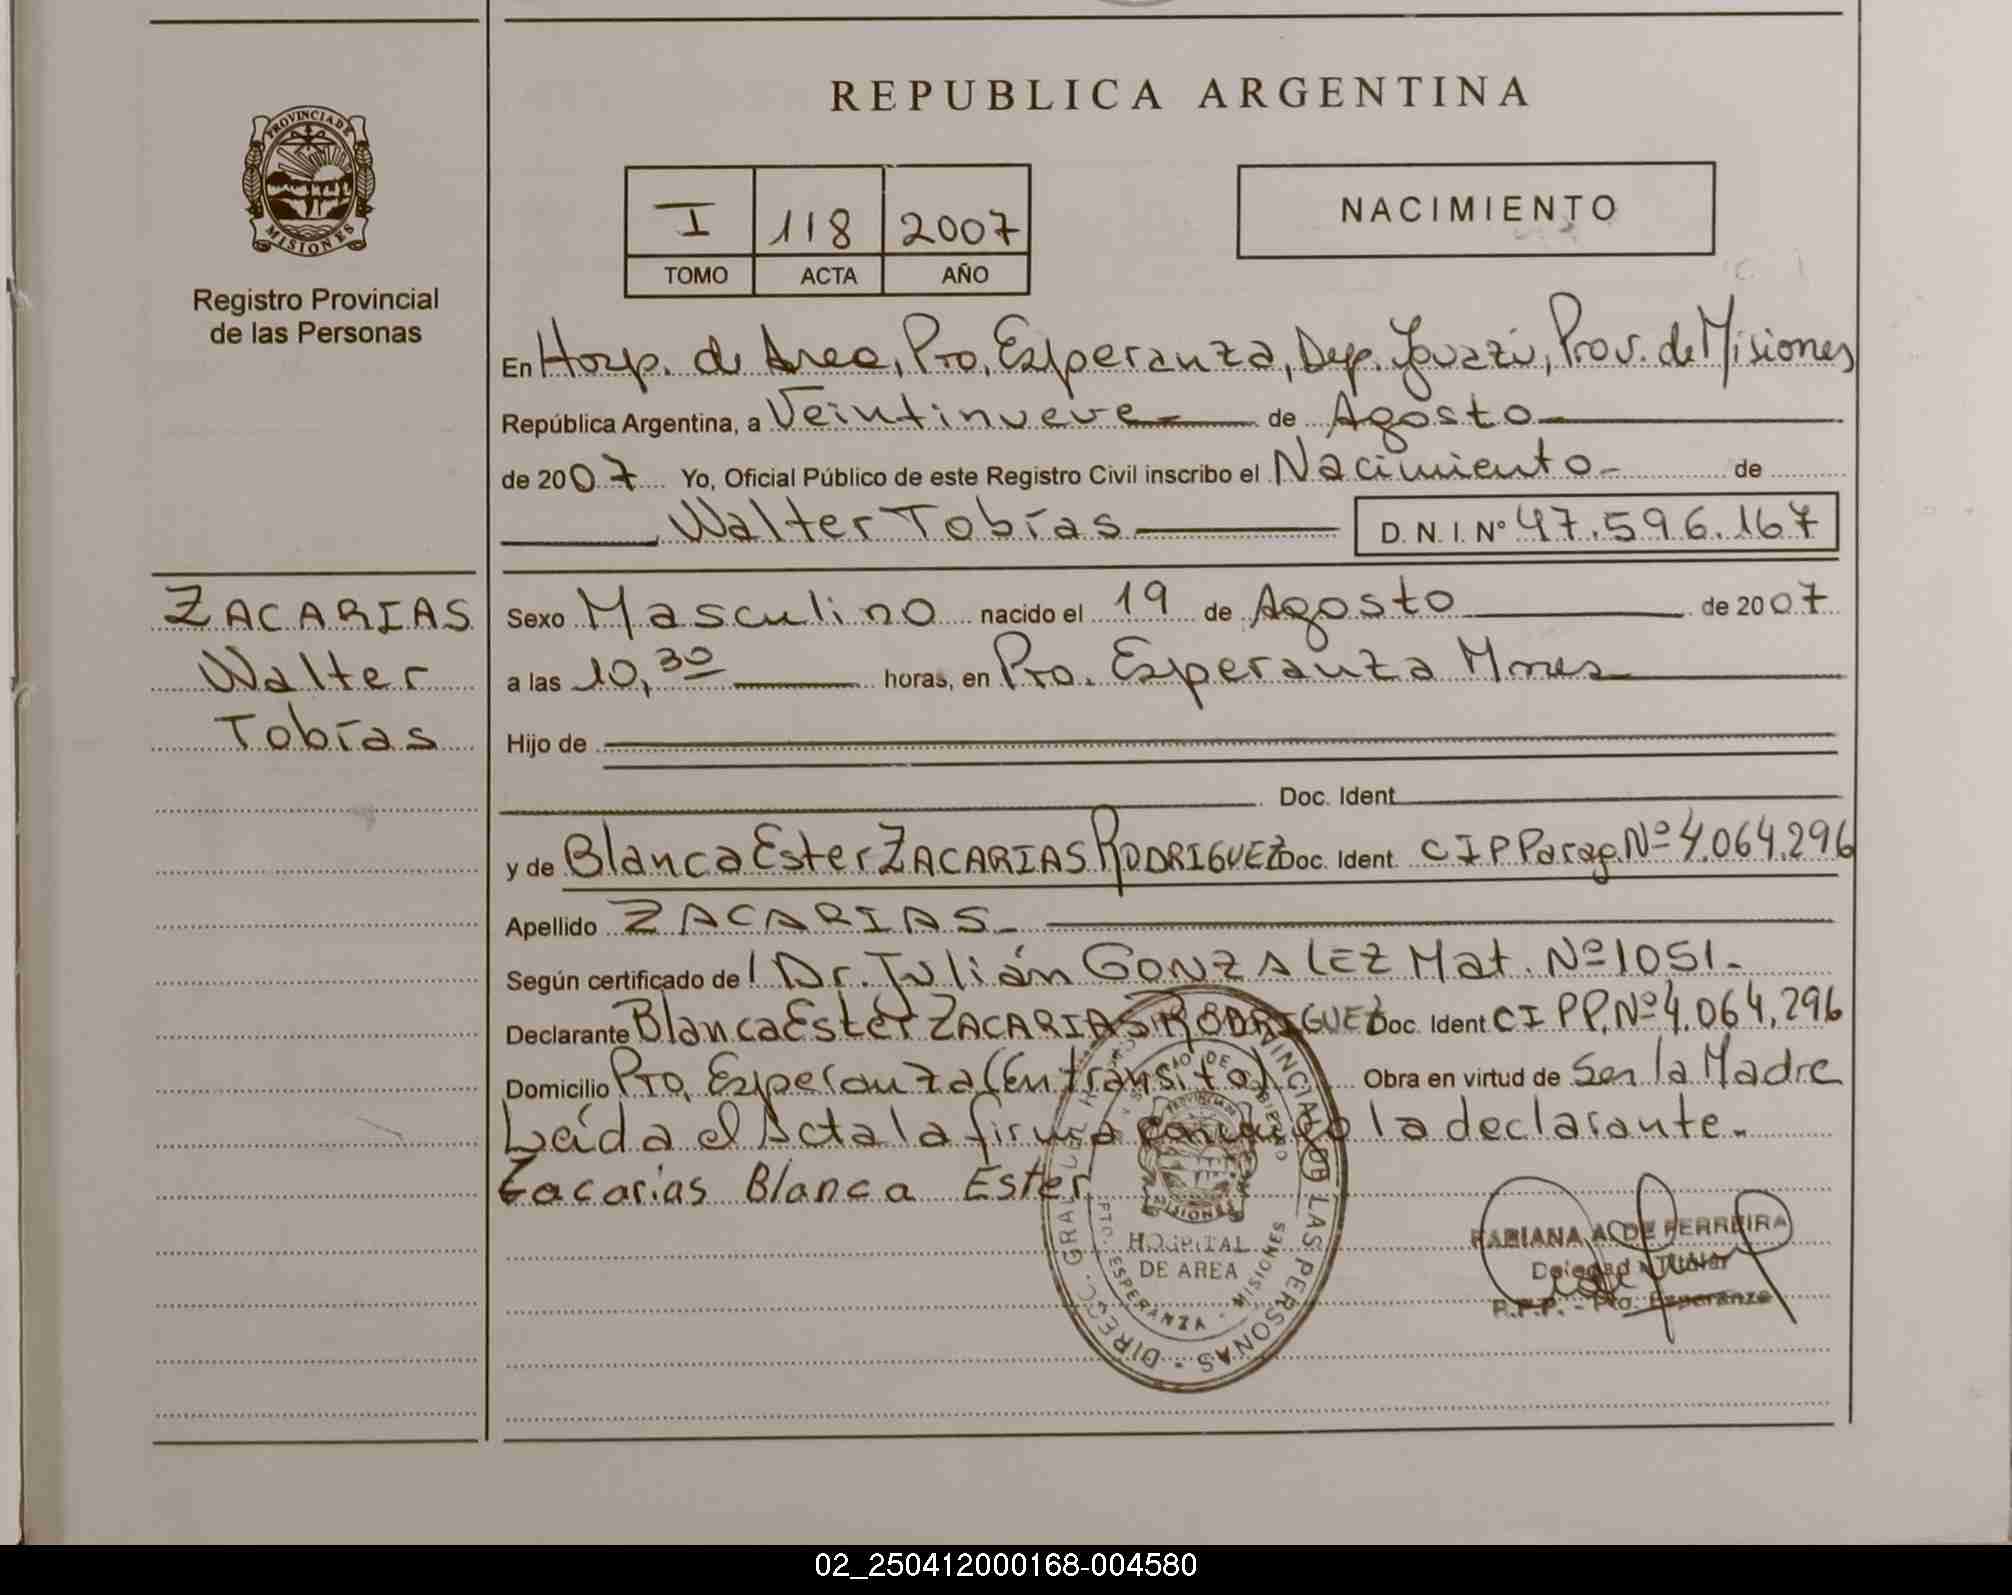 REPUBLICA ARGENTINA
PROVINCIA DE
MISIONES
Registro Provincial
de las Personas
I 118 2007
TOMO ACTA AÑO
NACIMIENTO
En Hosp. de Area, Pto. Esperanza, Dep. Iguazú, Prov. de Misiones
República Argentina, a Veintinueve de Agosto
de 2007 Yo, Oficial Público de este Registro Civil inscribo el Nacimiento de
Walter Tobías D.N.I. Nº 47.596.167
ZACARIAS
Walter
Tobías
Sexo Masculino nacido el 19 de Agosto de 2007
a las 10,30 horas, en Pto. Esperanza Mnes
Hijo de
Doc. Ident.
y de Blanca Ester ZACARIAS RODRIGUEZ Doc. Ident. CIP Parag. Nº 4.064.296
Apellido ZACARIAS
Según certificado de Dr. Julián GONZALEZ Mat. Nº 1051.
Declarante Blanca Ester ZACARIAS RODRIGUEZ Doc. Ident CIPP. Nº 4.064.296
Domicilio Pto. Esperanza (En transito) Obra en virtud de Ser la Madre
Leída el Acta la firma conmigo la declarante.
Zacarias Blanca Ester
DIREC. GRAL. DEL REG. PROVINCIAL DE LAS PERSONAS
PROVINCIA DE
MISIONES
HOSPITAL
DE AREA
PTO. ESPERANZA - MISIONES
FABIANA A. DE FERREIRA
Delegada Titular
R.P.P. - Pto. Esperanza
02_250412000168-004580